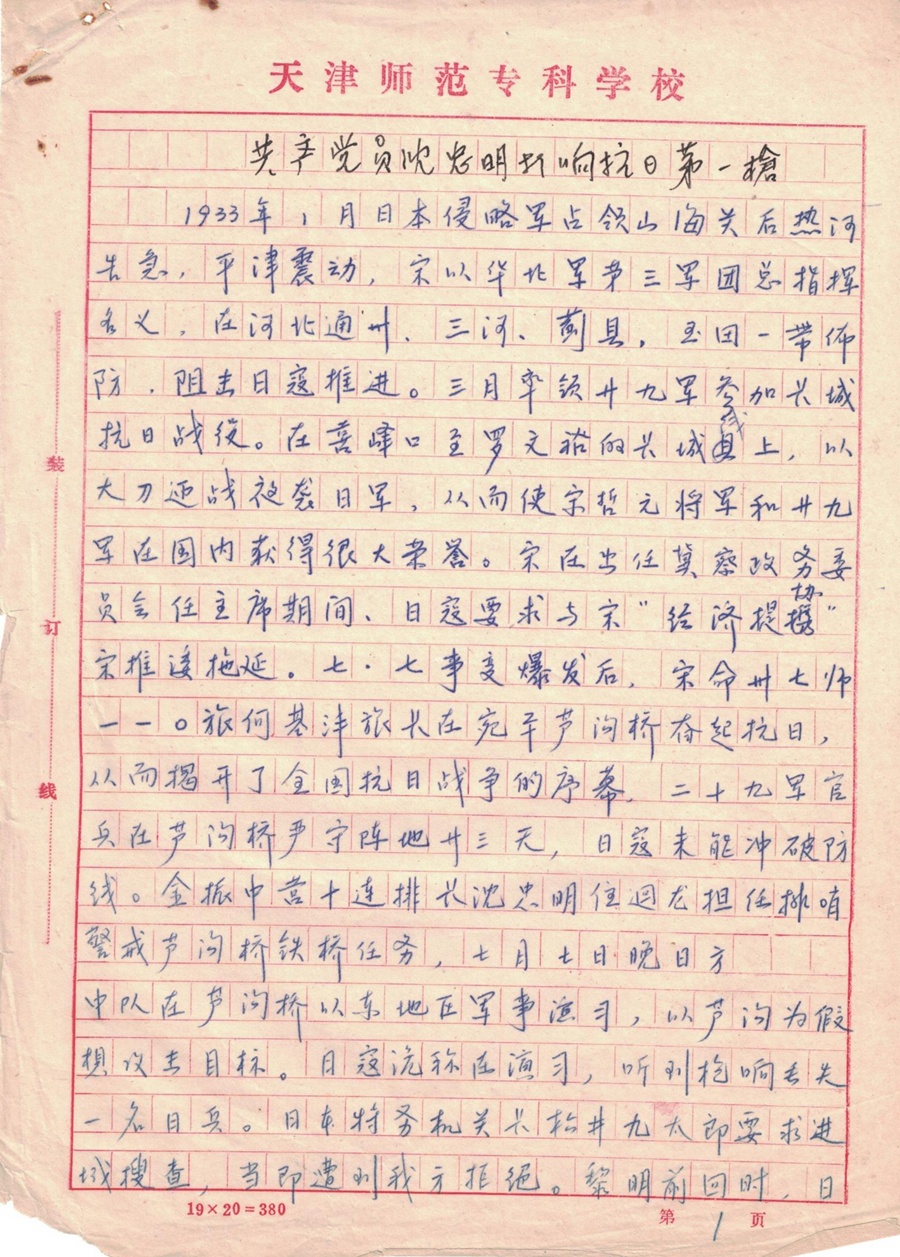 天津师范专科学校
共产党员沈忠明打响抗日第一槍
1933年1月日本侵略军占领山海关后热河
告急，平津震动，宋以华北军第三军团总指挥
名义，在河北通州、三河、蓟县，玉田一带佈
防，阻击日寇推进。三月率领廿九军参加长城
抗日战役。在喜峰口至罗文裕的长城线上，以
大刀迎战夜袭日军，从而使宋哲元将军和廿九
军在国内获得很大荣誉。宋在出任冀察政务委
员会任主席期间、日寇要求与宋“经济提携”
协
宋推诿拖延。七·七事变爆发后，宋命卅七师
一一〇旅何基沣旅长在宛平芦沟桥奋起抗日，
从而揭开了全国抗日战争的序幕，二十九军官
兵在芦沟桥严守阵地廿三天，日寇未能冲破防
线。金振中营十连排长沈忠明住迴龙担任排哨
警戒芦沟桥铁桥任务，七月七日晚日方
中队在芦沟桥以东地区军事演习，以芦沟为假
想攻击目标。日寇诡称在演习，听到枪响丢失
一名日兵。日本特务机关长松井九太郎要求进
城搜查，当即遭到我方拒绝。黎明前回时，日
装
订
线
19×20=380
第1页